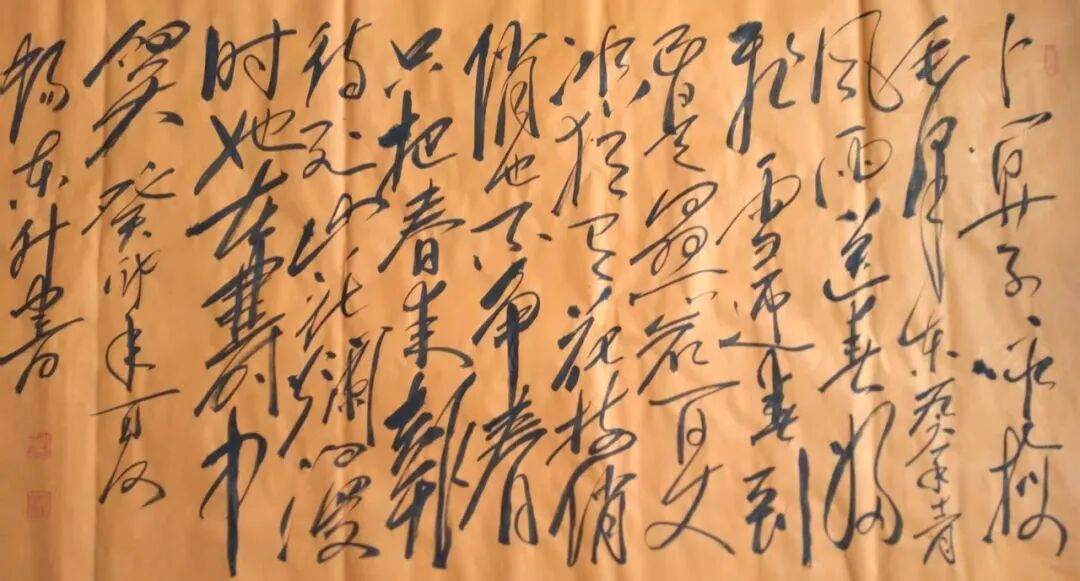 卜算子咏梅
毛泽东
风雨送春归
飞雪迎春到
已是悬崖百丈
冰犹有花枝俏
俏也不争春
只把春来報
待到山花烂漫
时她在丛中
笑 癸卯年夏
杨东升书